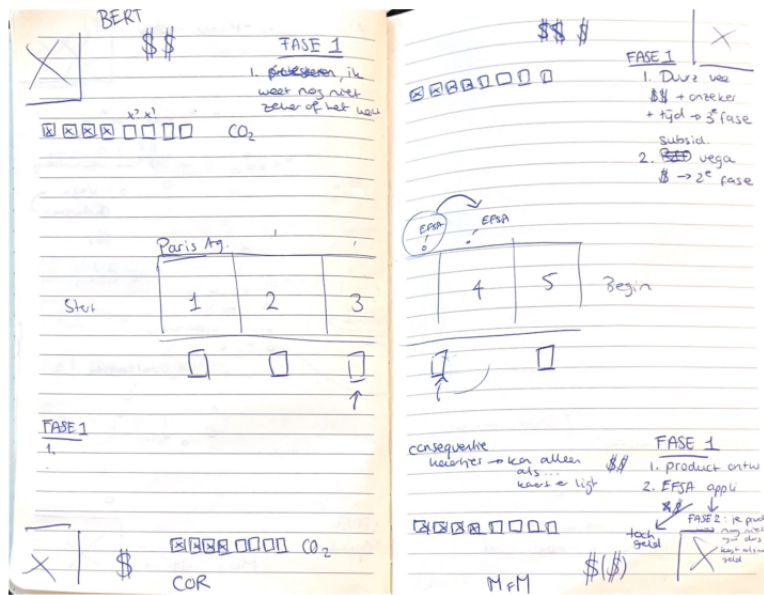 BERT
$$
FASE 1
1. ik
weet nog niet
zeker of het
x? x!
CO₂
Paris Ag.
Start
1 2 3
FASE 1
1.
CO₂
$
COR
$$ $
FASE 1
1. Duurz vee
$$ + onzeker
+ tijd → 3e fase
subsid.
2. vega
$ → 2e fase
EFSA
!
EFSA
!
4 5 Begin
consequentie
kaartjes → kan alleen
als...
kaart er ligt
$$
FASE 1
1. product ontw
2. EFSA appli
toch
geld
FASE 2: je prod
nog niet
geld
$($)
MFM